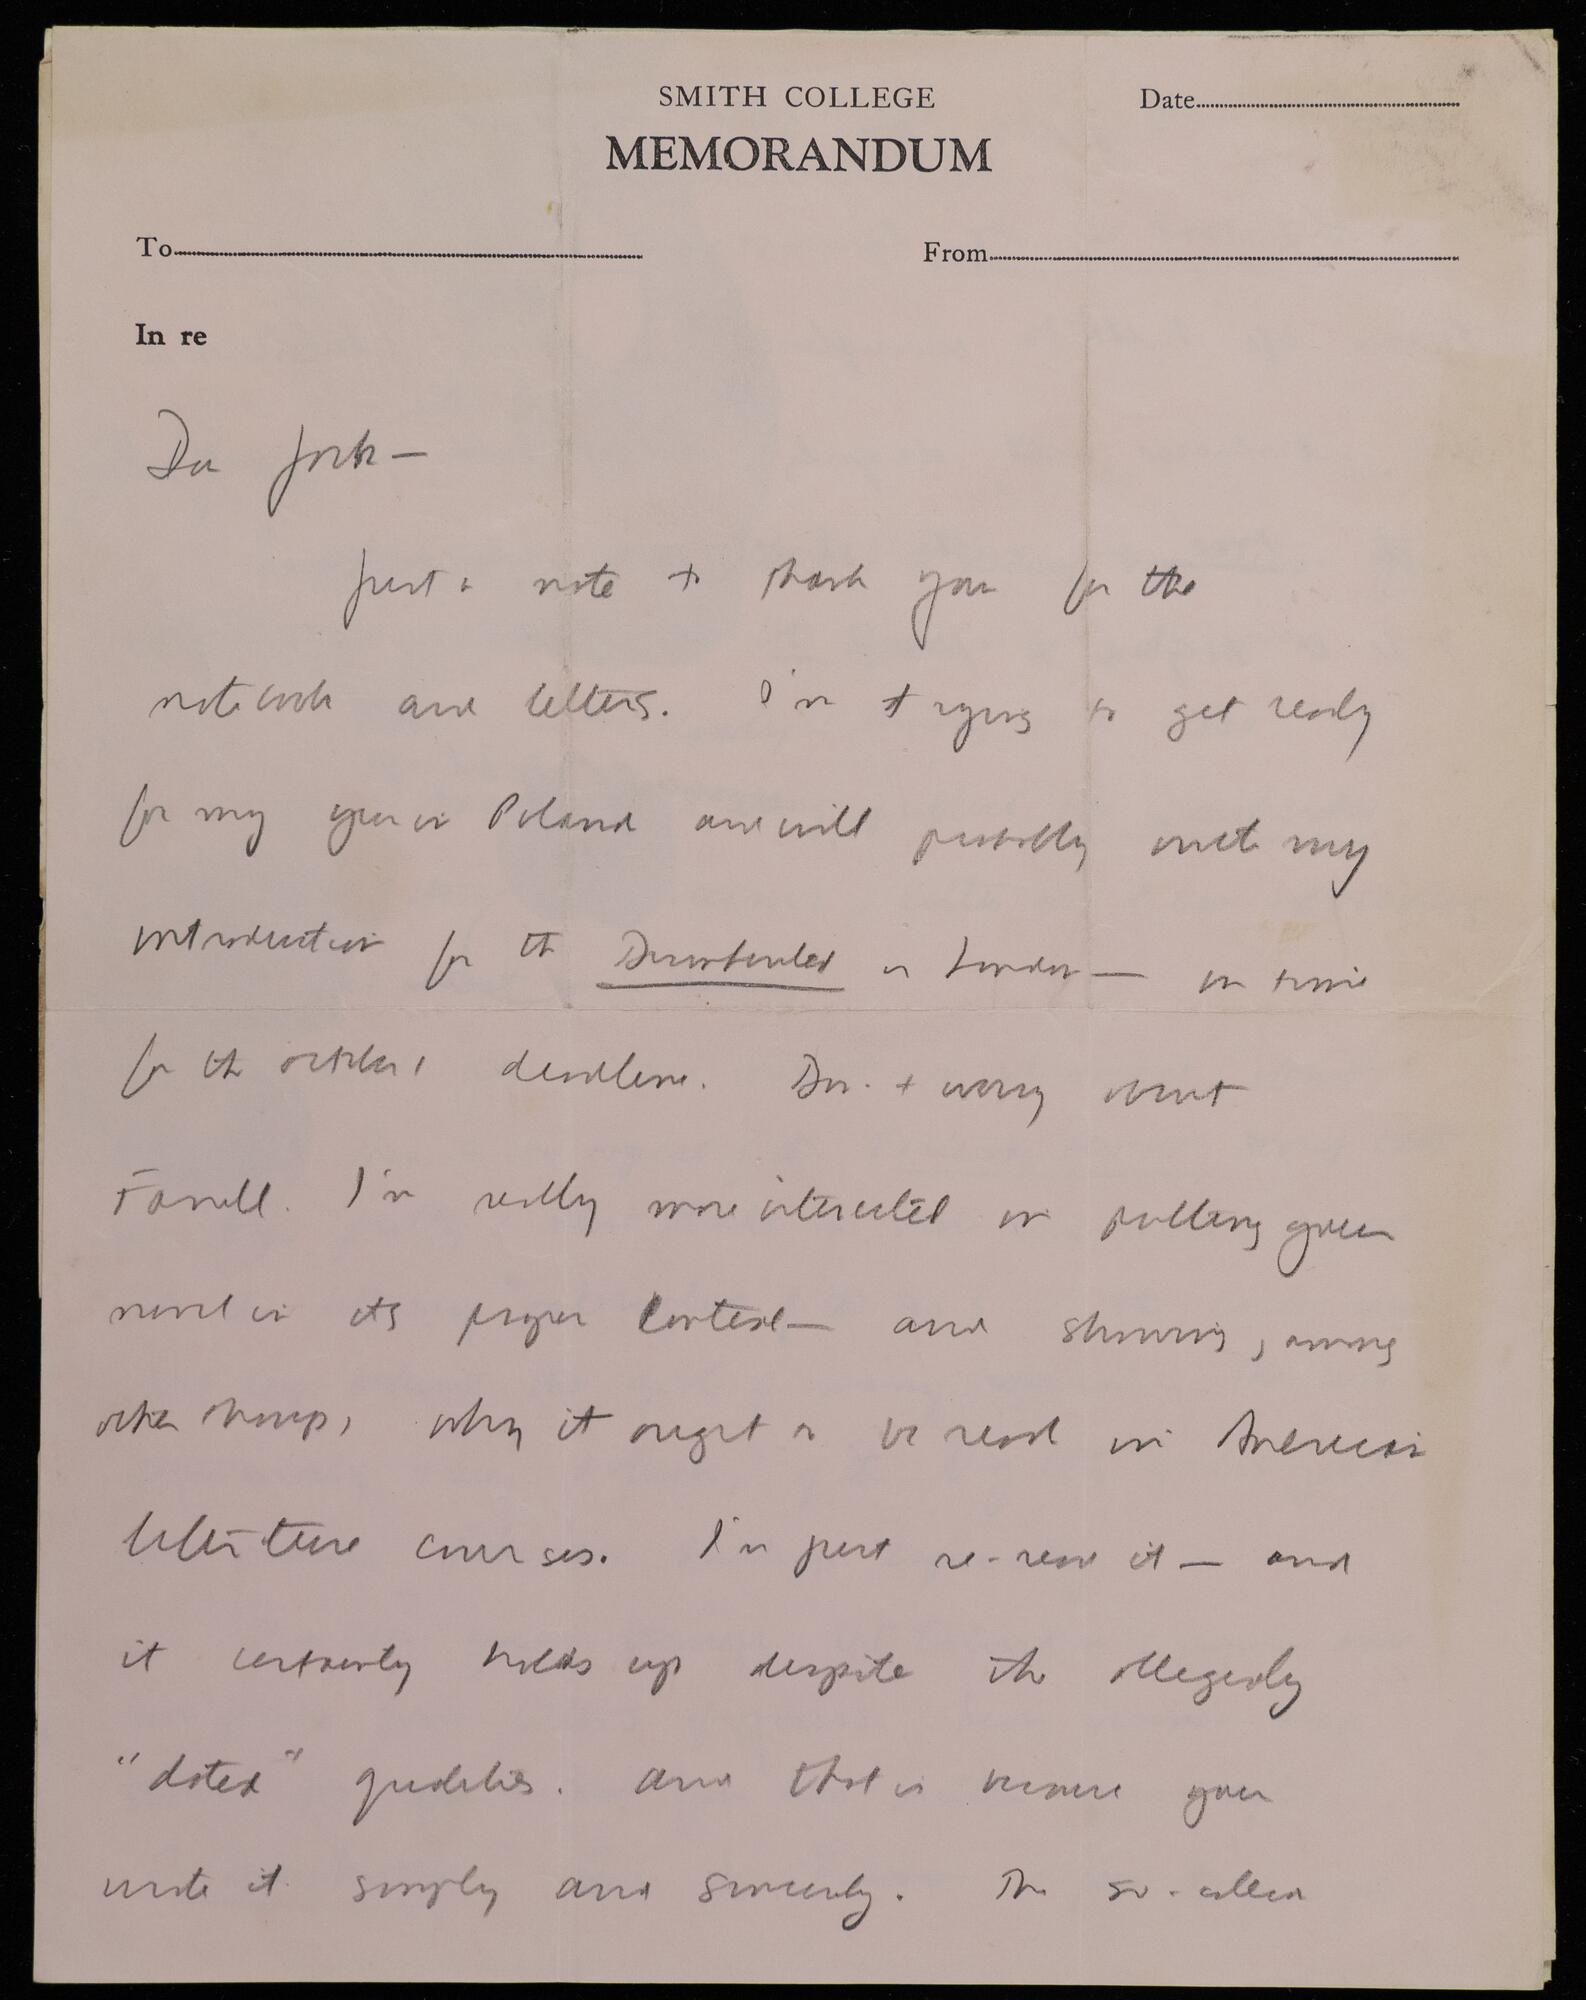 SMITH COLLEGE
Date
MEMORANDUM
To
From
In re
Dear Jack —
Just a note to thank you for the
notebook and letters. I'm trying to get ready
for my year in Poland and will probably write my
introduction for the Disinherited in London — in time
for the October 1 deadline. Don't worry about
Farrell. I'm really more interested in putting your
novel in its proper context — and showing, among
other things, why it ought to be read in American
literature courses. I'm just re-read it — and
it certainly holds up despite the allegedly
"dated" qualities. And that is because you
wrote it simply and sincerely. The so-called